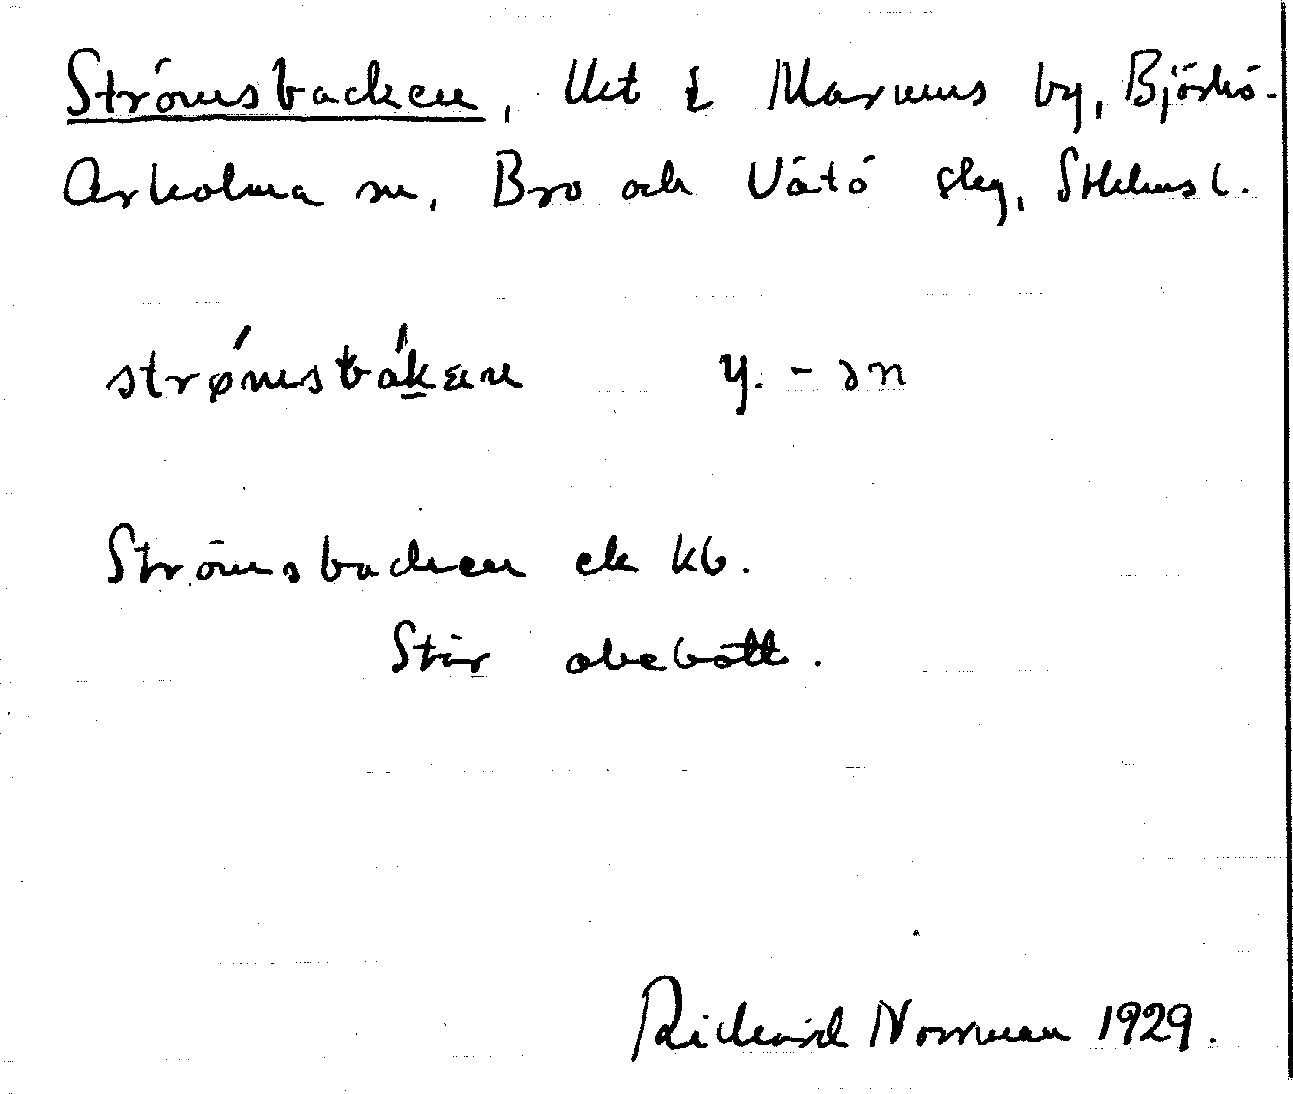 Strömsbacken, Ut i Marums by, Björkö-
Arholma sn, Bro och Vätö skg, Sthlms l.
strǿmsbák̠ɛn y. -ən
Strömsbacken ek kb.
Står obebott.
Rickard Norrman 1929.